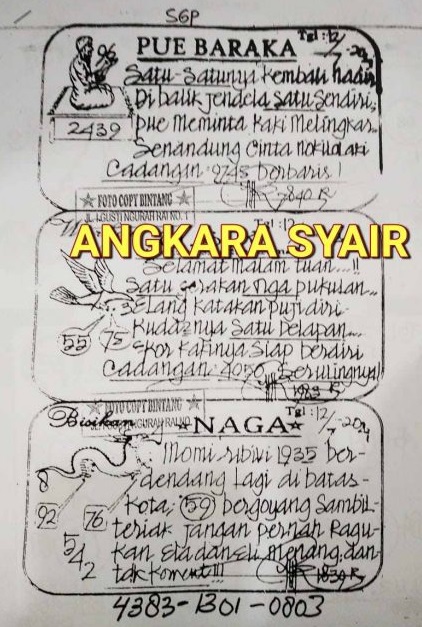 SGP
PUE BARAKA Tgl : 12/7-2024
96
Satu-Satunya kembali hadir
Di balik jendela satu sendiri
2439
Pue Meminta Kaki Melingkar
Senandung Cinta
Cadangan 9745 berbaris !
FOTO COPY BINTANG
JL. I GUSTI NGURAH RAI NO. 1
7840 R
Tgl : 12
ANGKARA SYAIR
Selamat malam tuan...!!
Satu gerakan nga pukulan
Elang katakan puji diri
55 75
Kudanya Satu Delapan
Ekor kakinya siap berdiri
Cadangan 4050
FOTO COPY BINTANG
Bisikan NAGA Tgl : 12/7-2024
Momi ribiwi 1935 ber-
dendang lagi di batas-
8
kota 59 bergoyang Sambil
92 76
teriak jangan pernah Ragu-
542
kan Ela dan Eli menang dan
tak koment !!!
1839 R
4383-1301-0803